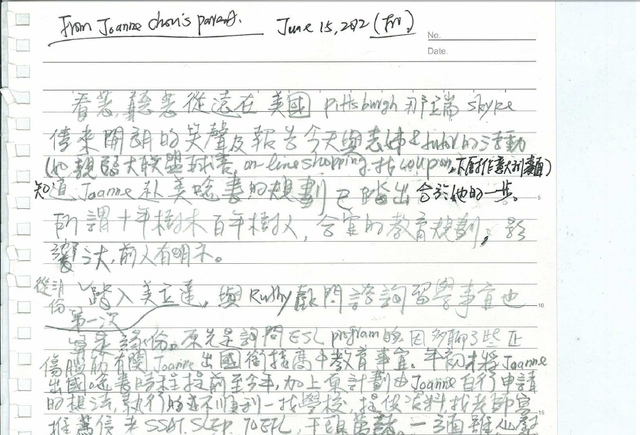 From Joanne chou's parent. June 15, 2012 (Fri.)
No.
Date.
看著, 聽著從遠在美國 Pittsburgh 那端 skype
傳來開朗的笑聲及報告今天與老師 & tutor 的活動
(她親臨大聯盟球賽, on-line shopping, 找 coupon, 下廚作義大利麵)
知道 Joanne 赴美唸書的規劃已踏出合於她的一步。
所謂十年樹木百年樹人, 合宜的教育規劃, 影
響之大, 前人有明示。
從3月份第一次踏入美立達, 與 Ruthy 顧問諮詢留學事宜也
算是緣份。原先是詢問 ESL program 的, 因多聊了些正
傷腦筋有關 Joanne 出國銜接高中教育事宜。年初才將 Joanne
出國唸書時程提前至今年, 加上原計劃由 Joanne 自行申請
的想法, 執行的並不順利 — 找學校、提供資料、找老師寫
推薦信、考 SSAT, SLEP, TOEFL, 千頭萬緒,